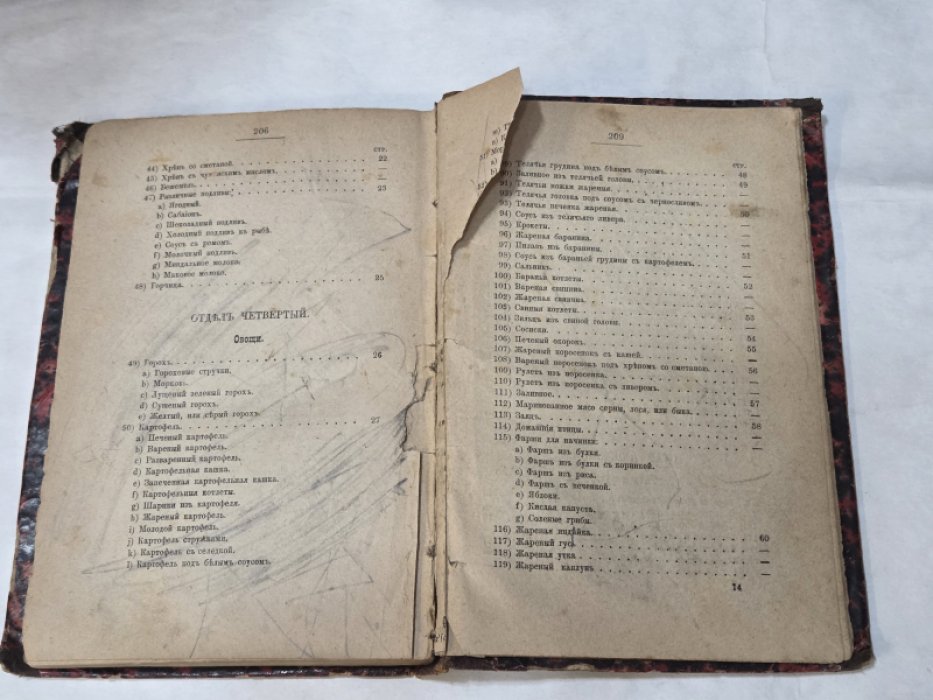 206
стр.
44) Хрѣнъ со сметаной. 22
45) Хрѣнъ съ чухонскимъ масломъ. —
46) Бешемель. —
47) Различные подливы: 23
a) Ягодный.
b) Сабаіонъ.
c) Шеколадный подливъ.
d) Холодный подливъ къ рыбѣ.
e) Соусъ съ ромомъ.
f) Молочный подливъ.
g) Миндальное молоко.
h) Маковое молоко.
48) Горчица. 25
ОТДѢЛЪ ЧЕТВЕРТЫЙ.
Овощи.
49) Горохъ. 26
a) Гороховые стручки.
b) Морковь.
c) Лущеный зеленый горохъ.
d) Сушеный горохъ.
e) Желтый, или сѣрый горохъ.
50) Картофель. 27
a) Печеный картофель.
b) Вареный картофель.
c) Разваренный картофель.
d) Картофельная кашка.
e) Запеченная картофельная кашка.
f) Картофельныя котлеты.
g) Шарики изъ картофеля.
h) Жареный картофель.
i) Молодой картофель.
j) Картофель стружками.
k) Картофель съ селедкой.
l) Картофель подъ бѣлымъ соусомъ.
209
стр.
Телячья грудина подъ бѣлымъ соусомъ. 48
90) Заливное изъ телячьей головы. 49
91) Телячьи ножки жареныя. —
Телячья головка подъ соусомъ съ черносливомъ. —
93) Телячья печенка жареная. 50
94) Соусъ изъ телячьяго ливера. —
95) Крокеты. —
96) Жареная баранина. —
97) Пилавъ изъ баранины. —
98) Соусъ изъ бараньей грудины съ картофелемъ. 51
99) Сальникъ. —
100) Бараньи котлеты. —
101) Вареная свинина. 52
102) Жареная свинина. —
103) Свиныя котлеты. —
104) Зальцъ изъ свиной головы. 53
105) Сосиски. —
106) Печеный окорокъ. 54
107) Жареный поросенокъ съ кашей. 55
108) Вареный поросенокъ подъ хрѣномъ со сметаною. —
109) Рулетъ изъ поросенка. 56
110) Рулетъ изъ поросенка съ ливеромъ. —
111) Заливное. —
112) Маринованное мясо серны, лося, или быка. 57
113) Заяцъ. —
114) Домашнія птицы. 58
115) Фарши для начинки: —
a) Фаршъ изъ булки.
b) Фаршъ изъ булки съ коринкой.
c) Фаршъ изъ риса.
d) Фаршъ съ печенкой.
e) Яблоки.
f) Кислая капуста.
g) Соленые грибы.
116) Жареная индѣйка. —
117) Жареный гусь 60
118) Жареная утка —
119) Жареный каплунъ —
14